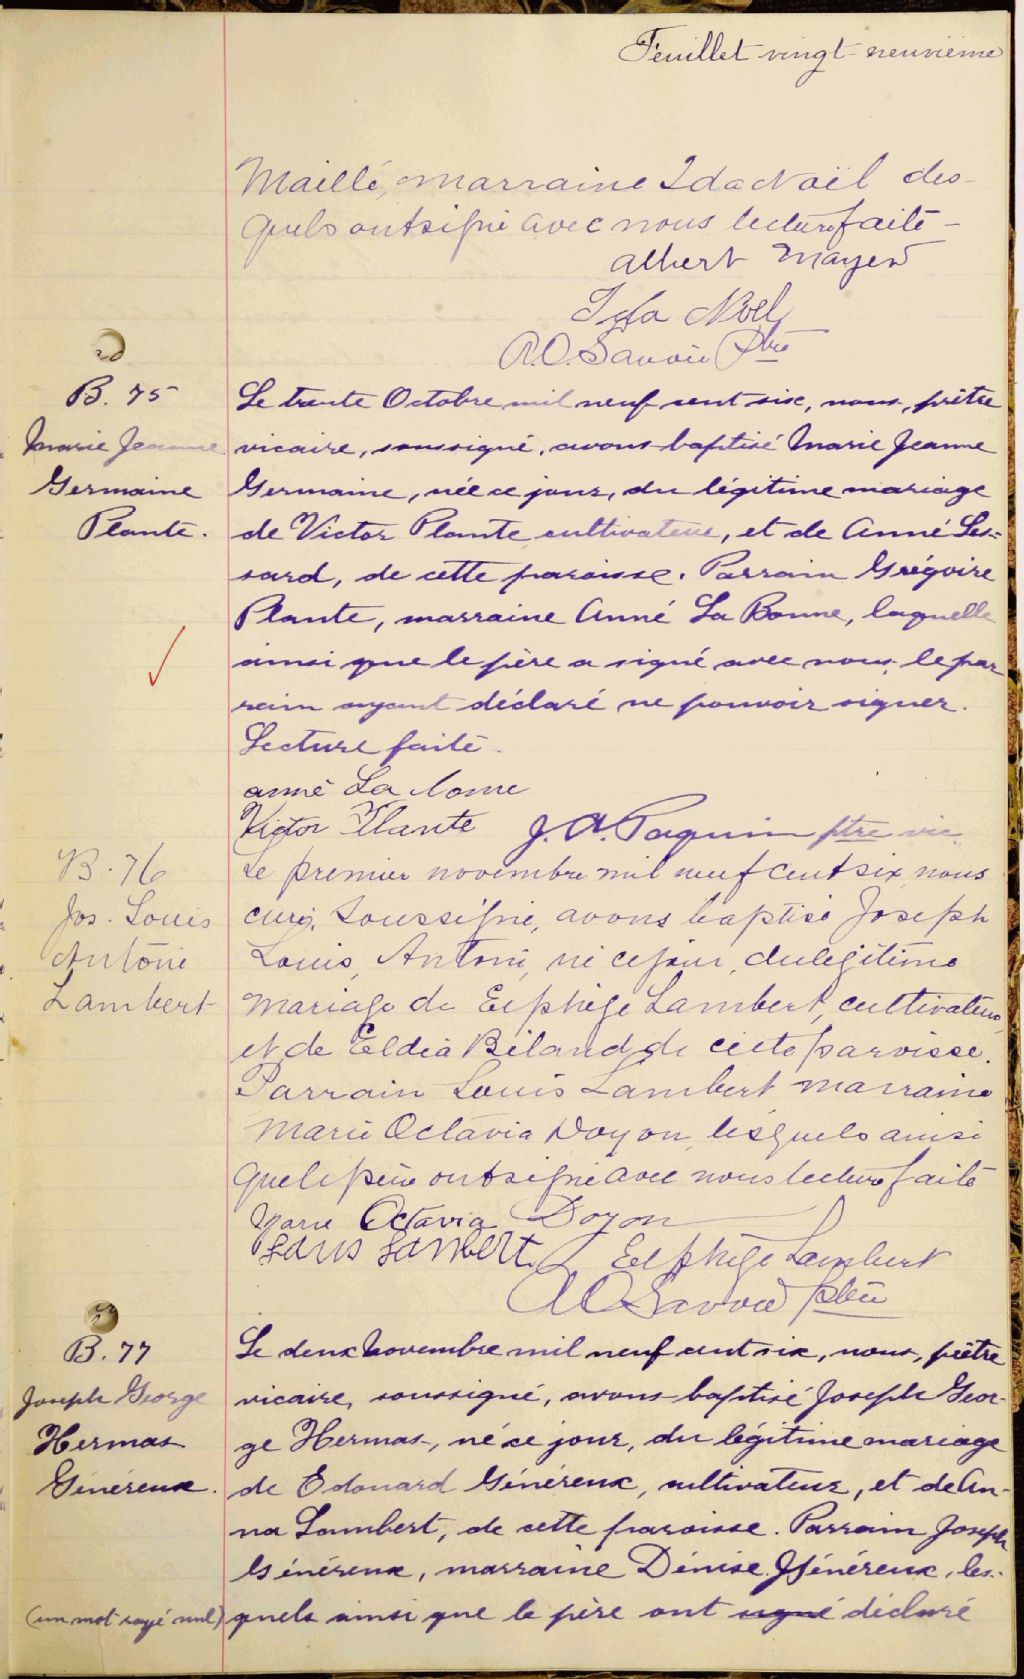 Feuillet vingt-neuvième
Maillé, marraine Ida Noël des-
quels ont signé avec nous lecture faite -
Albert Mayer
Ida Noel
A.O. Savoie Ptre
B. 75
Marie Jeanne
Germaine
Plante.
Le trente Octobre mil neuf cent six, nous, prêtre
vicaire, soussigné, avons baptisé Marie Jeanne
Germaine, née ce jour, du légitime mariage
de Victor Plante cultivateur, et de Anné Les=
sard, de cette paroisse. Parrain Grégoire
Plante, marraine Anné La Bonne, laquelle
ainsi que le père a signé avec nous, le par
rain ayant déclaré ne pouvoir signer.
Lecture faite.
anné La bonne
Victor Plante J. A. Paquin ptre vic.
B. 76
Jos. Louis
Antoni
Lambert
Le premier novembre mil neuf cent six nous
curé, soussigné, avons baptisé Joseph
Louis, Antoni, né ce jour, du légitime
mariage de Elphège Lambert, cultivateur,
et de Eldia Béland de cette paroisse.
Parrain Louis Lambert marraine
Marie Octavia Doyon, lesquels ainsi
que le père ont signé avec nous lecture faite
Marie Octavia Doyon
Louis Lambert. Elphège Lambert
A O Savoie ptre
B. 77
Joseph George
Hermas
Généreux.
(un mot rayé nul)
Le deux Novembre mil neuf cent six, nous, prêtre
vicaire, soussigné, avons baptisé Joseph Geor-
ge Hermas, né ce jour, du légitime mariage
de Edouard Généreux, cultivateur, et de An-
na Lambert, de cette paroisse. Parrain Joseph
Généreux, marraine Dénise Généreux, les-
quels ainsi que le père ont signé déclaré